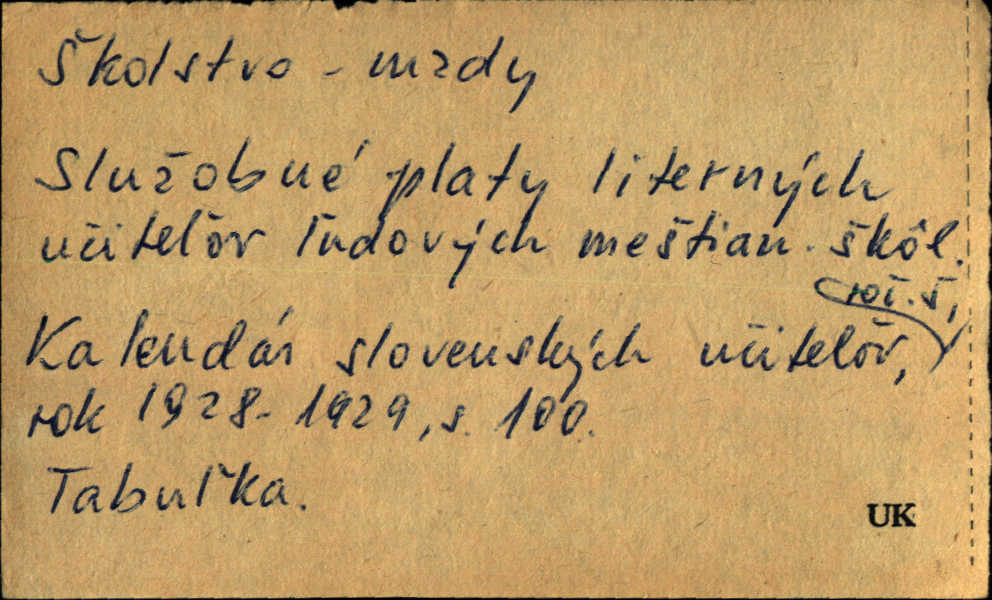 Školstvo - mzdy
Služobné platy literných
učiteľov ľudových meštian. škôl.
roč. 5,
Kalendár slovenských učiteľov,
rok 1928-1929, s. 100.
Tabuľka.
UK